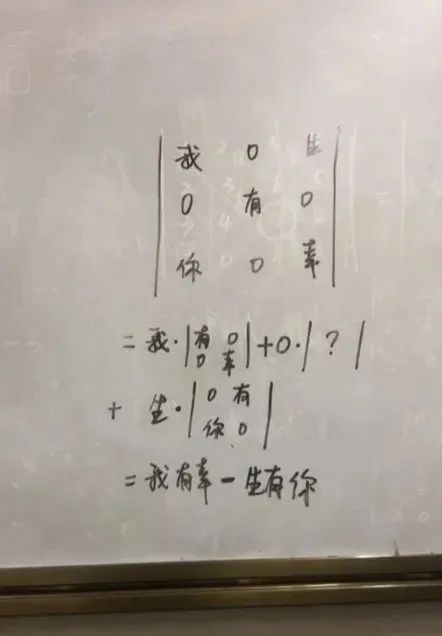 | 我 0 生 |
| 0 有 0 |
| 你 0 幸 |
= 我·| 有 0 | + 0·| ? |
| 0 幸 |
+ 生·| 0 有 |
| 你 0 |
= 我有幸 - 生有你